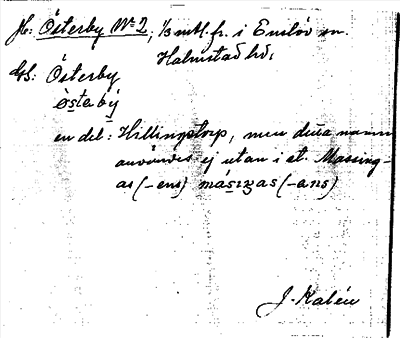 fb: Österby No 2, 1/3 mtl. fr. i Enslöv sn.
Halmstad hd.
ds: Österby
östabý
en del: Hillingstorp, men detta namn
användes ej utan i st. Massing-
as (-ens) másiŋas (-ans)
J. Kalén